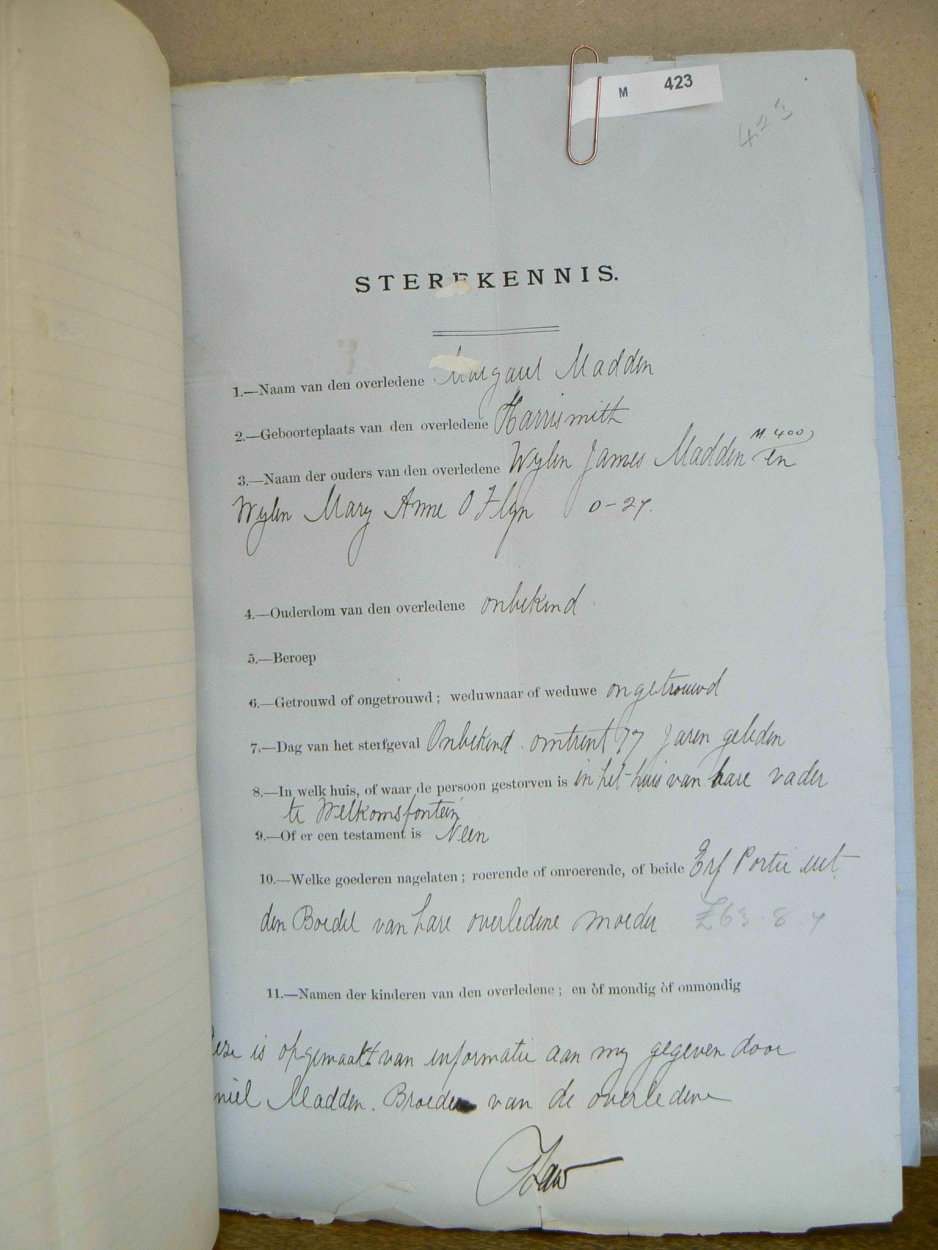 M 423
423
STERFKENNIS.
1.—Naam van den overledene Margaret Madden
2.—Geboorteplaats van den overledene Harrismith
M 400
3.—Naam der ouders van den overledene Wylen James Madden en
Wylen Mary Anne O Flyn O-27.
4.—Ouderdom van den overledene onbekend
5.—Beroep
6.—Getrouwd of ongetrouwd; weduwnaar of weduwe ongetrouwd
7.—Dag van het sterfgeval Onbekend. omtrent 17 Jaren geleden
8.—In welk huis, of waar de persoon gestorven is in het huis van hare vader
te Welkomsfontein
9.—Of er een testament is Neen
10.—Welke goederen nagelaten; roerende of onroerende, of beide Erf Portie uit
den Boedel van hare overledene moeder £63.8.7
11.—Namen der kinderen van den overledene; en òf mondig òf onmondig
is opgemaakt van informatie aan my gegeven door
niel Madden. Broeder van de overledene